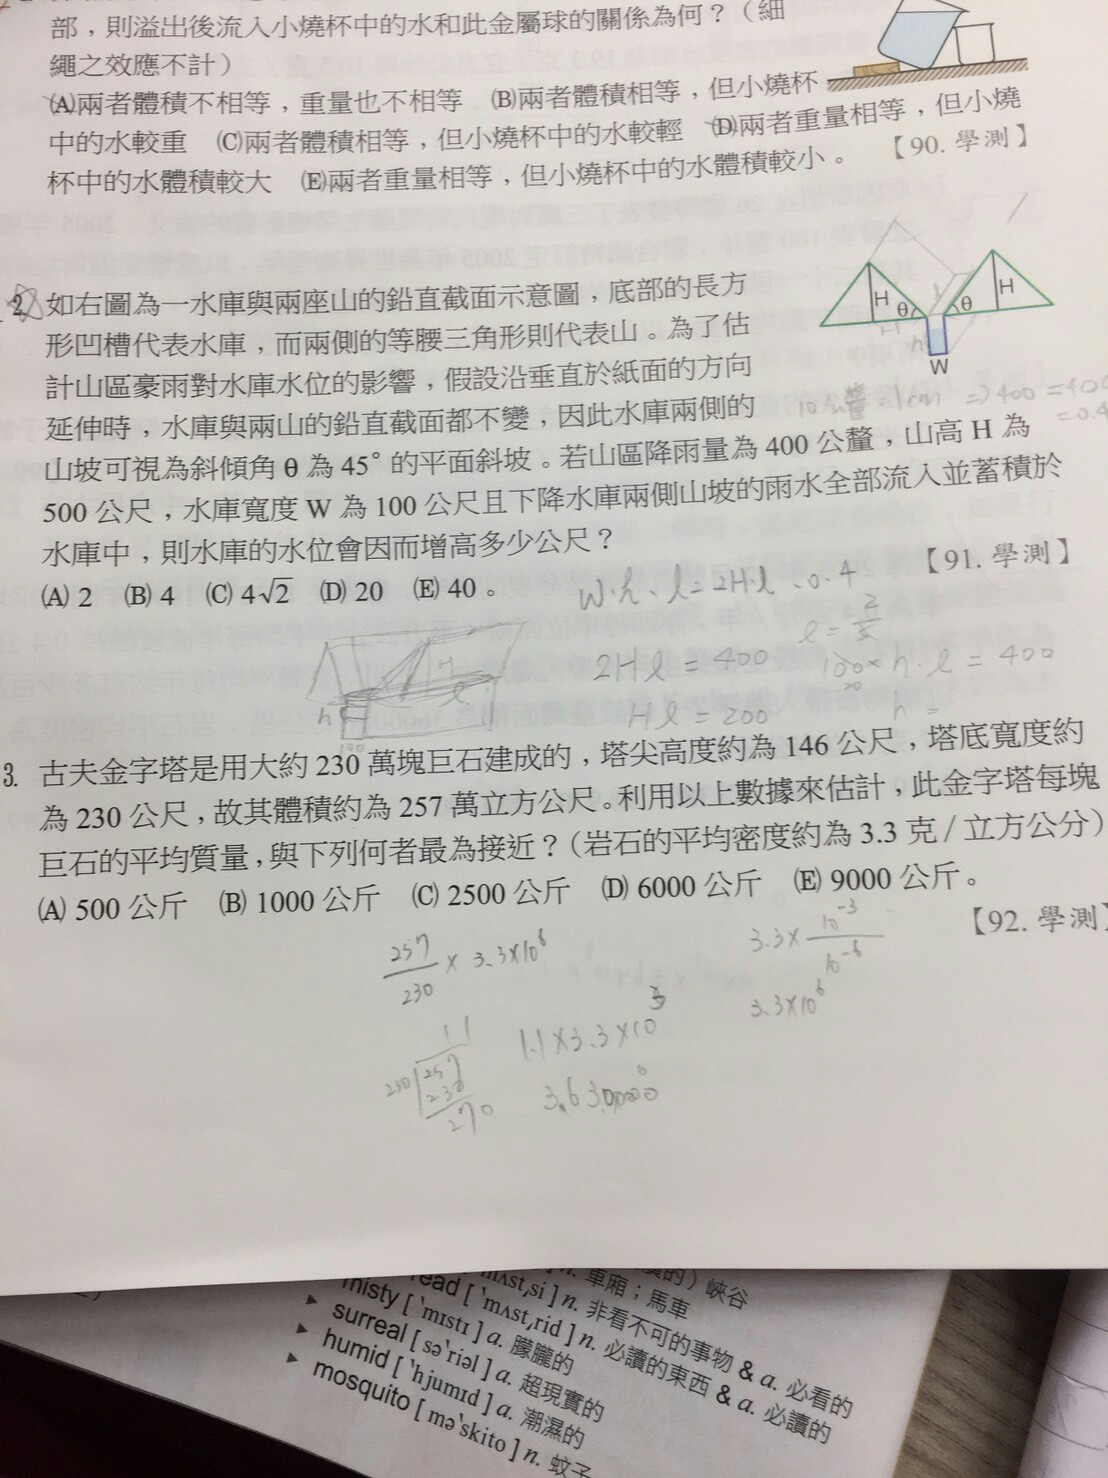 部，則溢出後流入小燒杯中的水和此金屬球的關係為何？（細
繩之效應不計）
(A)兩者體積不相等，重量也不相等 (B)兩者體積相等，但小燒杯
中的水較重 (C)兩者體積相等，但小燒杯中的水較輕 (D)兩者重量相等，但小燒
杯中的水體積較大 (E)兩者重量相等，但小燒杯中的水體積較小。 【90. 學測】
2. 如右圖為一水庫與兩座山的鉛直截面示意圖，底部的長方
形凹槽代表水庫，而兩側的等腰三角形則代表山。為了估
計山區豪雨對水庫水位的影響，假設沿垂直於紙面的方向
延伸時，水庫與兩山的鉛直截面都不變，因此水庫兩側的
山坡可視為斜傾角 θ 為 45° 的平面斜坡。若山區降雨量為 400 公釐，山高 H 為
500 公尺，水庫寬度 W 為 100 公尺且下降水庫兩側山坡的雨水全部流入並蓄積於
水庫中，則水庫的水位會因而增高多少公尺？ 【91. 學測】
(A) 2 (B) 4 (C) 4√2 (D) 20 (E) 40。
H θ θ H
W
h
=1cm ⇒ 400 = 400
= 0.4
W·h·l = 2H·l · 0.4
l = 2/5
2Hl = 400
100 × h · l = 400
Hl = 200
h =
H
l
h
100
3. 古夫金字塔是用大約 230 萬塊巨石建成的，塔尖高度約為 146 公尺，塔底寬度約
為 230 公尺，故其體積約為 257 萬立方公尺。利用以上數據來估計，此金字塔每塊
巨石的平均質量，與下列何者最為接近？（岩石的平均密度約為 3.3 克／立方公分）
(A) 500 公斤 (B) 1000 公斤 (C) 2500 公斤 (D) 6000 公斤 (E) 9000 公斤。
【92. 學測】
257/230 × 3.3×10⁶
3.3× 10⁻³/10⁻⁶
3.3×10⁶
11
230 257
230
270
1.1×3.3×10³
峽谷
車廂；馬車
[ˈmʌstˌsi] n. 非看不可的事物 & a. 必看的
read [ˈmʌstˌrid] n. 必讀的東西 & a. 必讀的
misty [ˈmɪstɪ] a. 朦朧的
▸ surreal [səˈriəl] a. 超現實的
▸ humid [ˈhjumɪd] a. 潮濕的
▸ mosquito [məˈskito] n. 蚊子